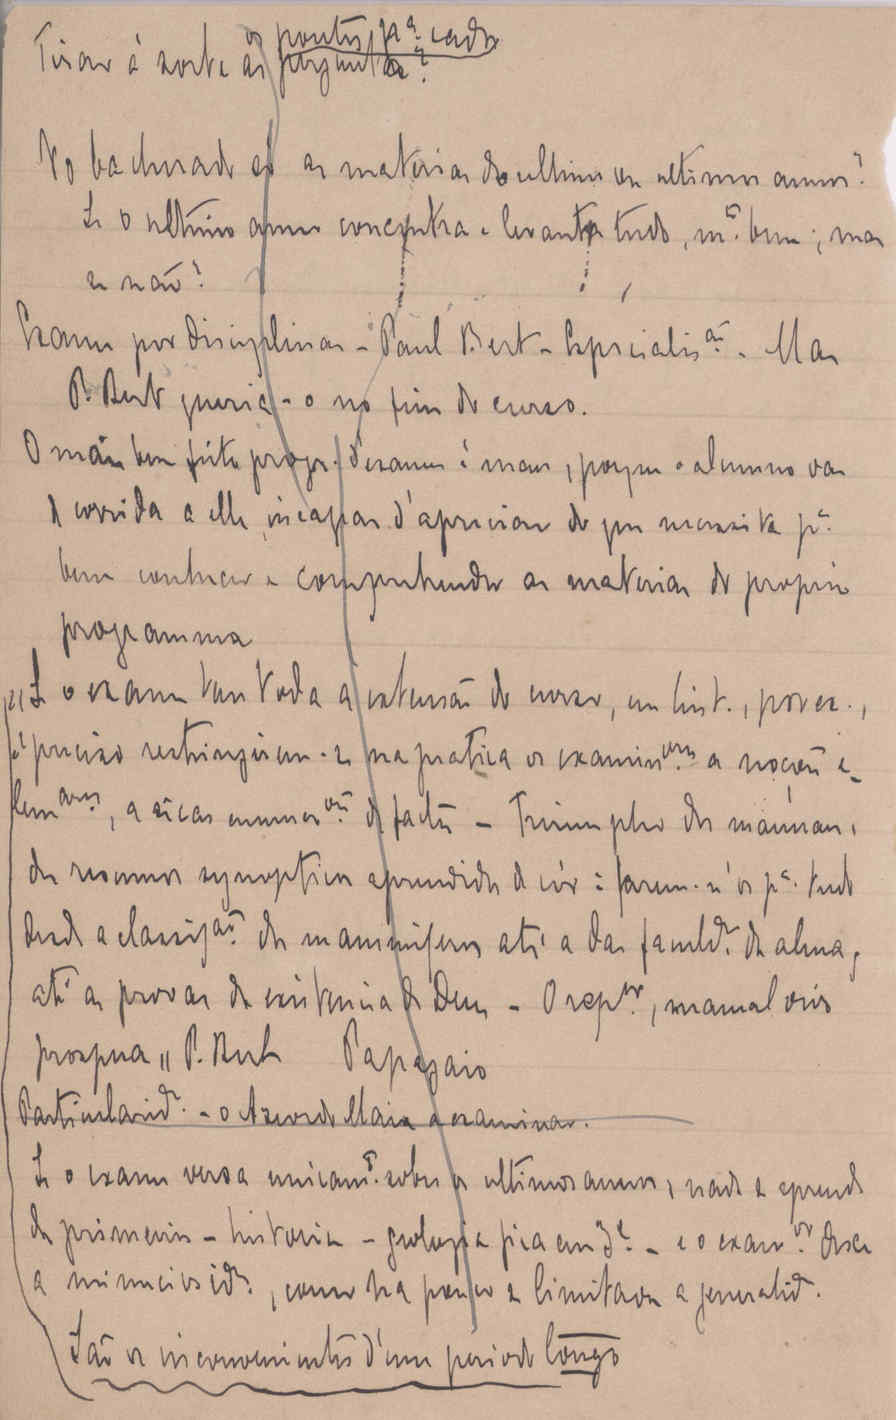 os pontos pª cada
Tirar á sorte as perguntas?
No bacharado só as materias do ultimo ou ultimos annos?
Se o ultimo anno concentra e levanta tudo, mto. bem; mas
se não?
Exame por disciplinas - Paul Bert - Especialisão. - Mas
P. Bert queria-o no fim do curso.
O mais bem feito progr. d'exames é mau, porque o alumno vae
de corrida a elle, incapaz d'apreciar do que necessita pª
bem conhecer e comprehender as materias do proprio
programma
"Se o exame tem toda a extensão do curso, em hist., por ex.,
é preciso restringirem-se na pratica os examinres. a noções e-
lemares, a sêcas enumerões. de factos - Triumpho dos manuaes,
dos resumos synopticos aprendidos de cór: fazem-n'os pª. tudo
desde a classifão. dos mammiferos até a das faculds. da alma,
até as provas da existencia de Deus - O repor, manual vivo
prospera" P. Bert Papagaio
Particularid. - o Azevedo Maia a examinar.
Se o exame versa unicamte. sobre os ultimos annos, nada se aprende
dos primeiros - historia - geologia fica em 3ª. - e o examor. desce
a minuciosids., como ha pouco se limitava a generalids.
São os inconvenientes d'um periodo longo